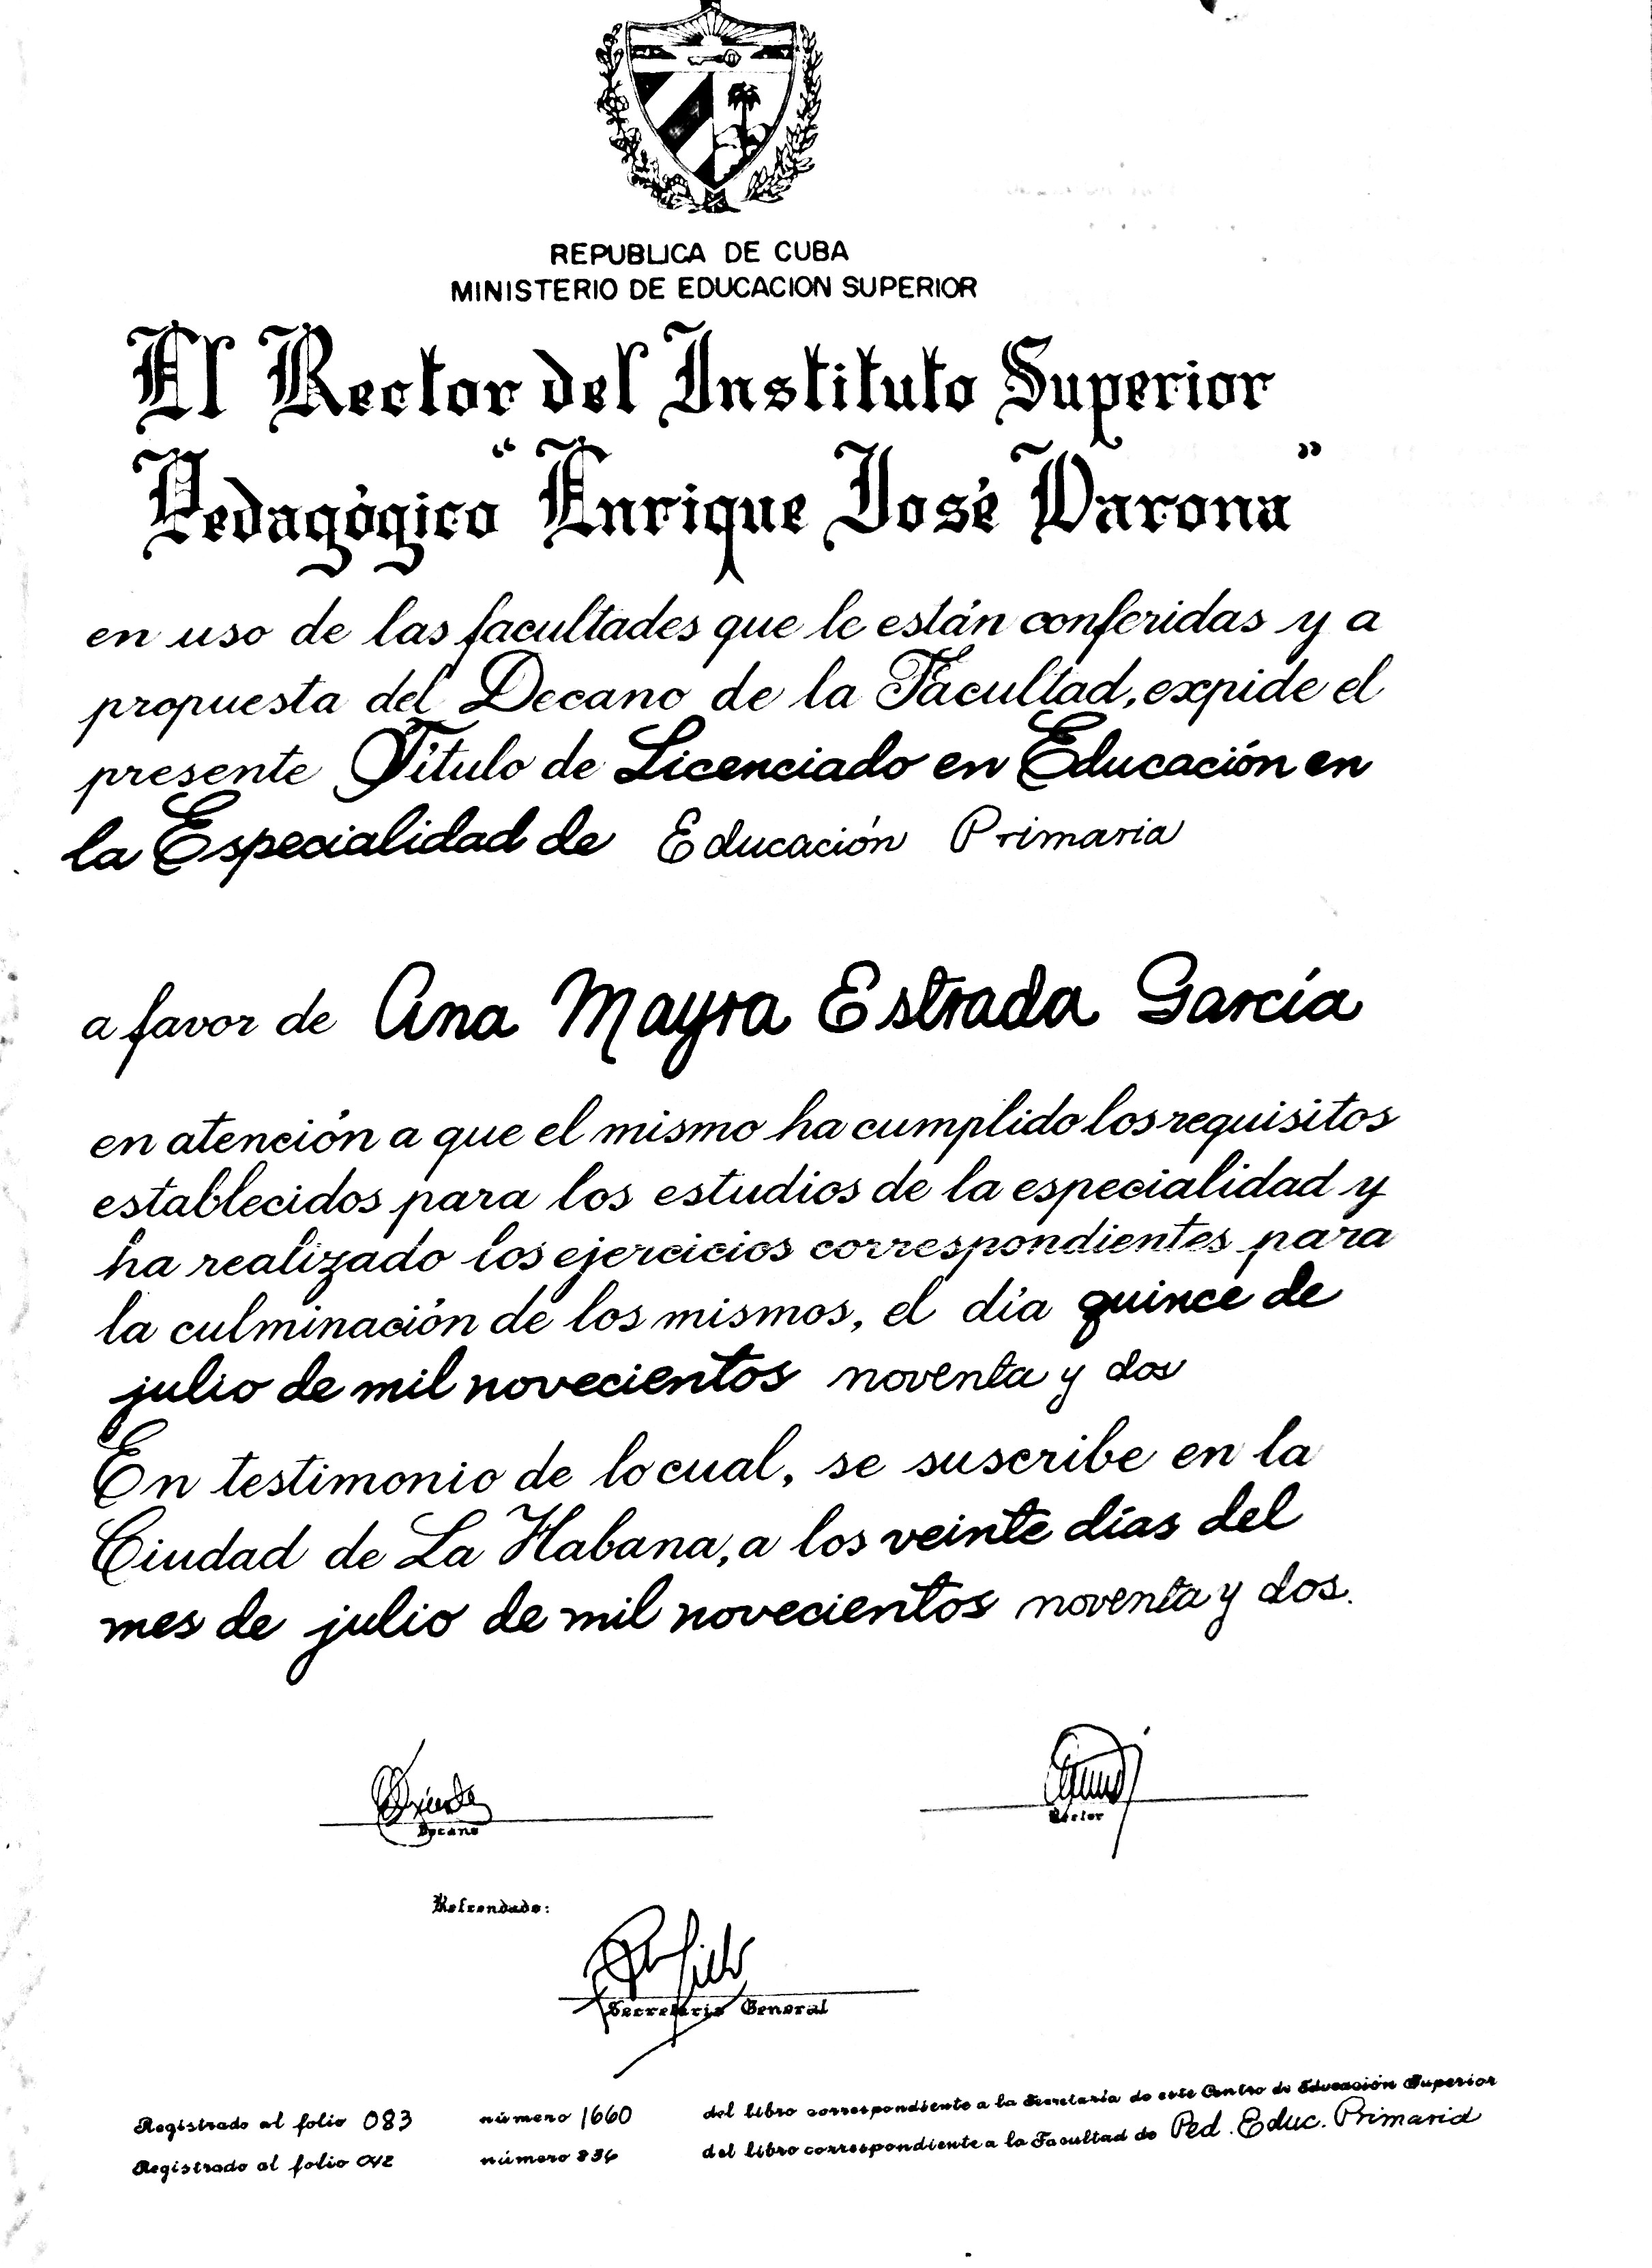 REPUBLICA DE CUBA
MINISTERIO DE EDUCACION SUPERIOR
El Rector del Instituto Superior
Pedagógico "Enrique José Varona"
en uso de las facultades que le están conferidas y a
propuesta del Decano de la Facultad, expide el
presente Título de Licenciado en Educación en
la Especialidad de Educación Primaria
a favor de Ana Mayra Estrada García
en atención a que el mismo ha cumplido los requisitos
establecidos para los estudios de la especialidad y
ha realizado los ejercicios correspondientes para
la culminación de los mismos, el día quince de
julio de mil novecientos noventa y dos
En testimonio de lo cual, se suscribe en la
Ciudad de La Habana, a los veinte días del
mes de julio de mil novecientos noventa y dos.
Decano
Rector
Refrendado:
Secretario General
Registrado al folio 083 número 1660 del libro correspondiente a la Secretaría de este Centro de Educación Superior
Registrado al folio número del libro correspondiente a la Facultad de Ped. Educ. Primaria